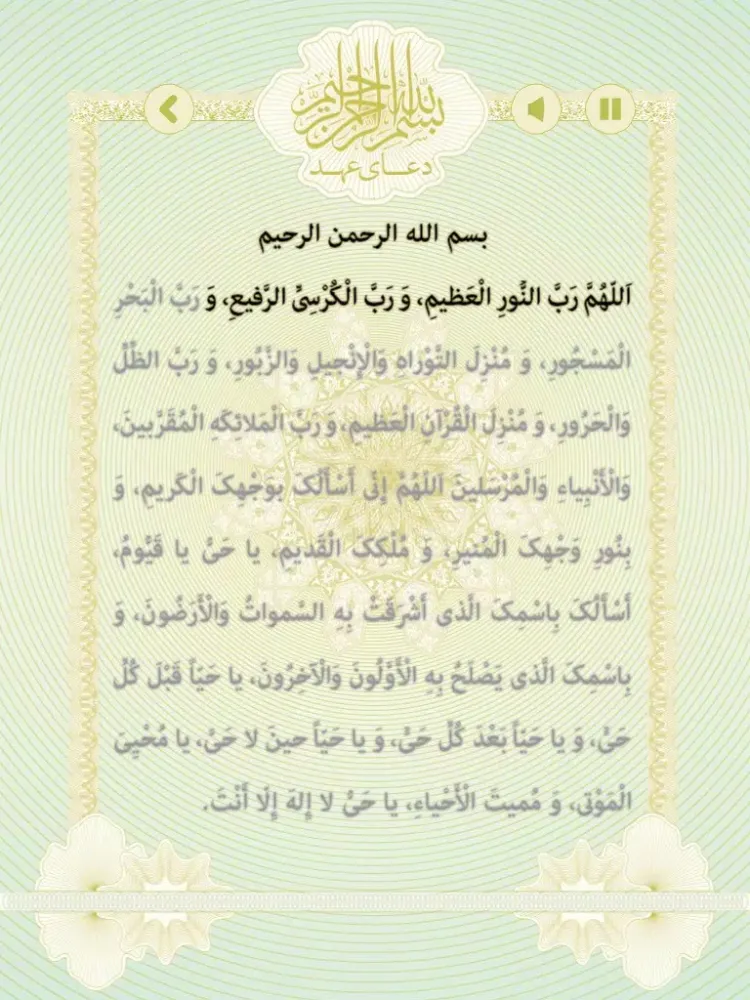 بسم الله الرحمن الرحیم
دعـــای عهـد
بسم الله الرحمن الرحیم
اَللّهُمَّ رَبَّ النُّورِ الْعَظیمِ، وَ رَبَّ الْکُرْسِیِّ الرَّفیعِ، وَ رَبَّ الْبَحْرِ
الْمَسْجُورِ، وَ مُنْزِلَ التَّوْراهِ وَالْإِنْجیلِ وَالزَّبُورِ، وَ رَبَّ الظِّلِّ
وَالْحَرُورِ، وَ مُنْزِلَ الْقُرْآنِ الْعَظیمِ، وَ رَبَّ الْمَلائِکَهِ الْمُقَرَّبینَ،
وَالْأَنْبِیاءِ وَالْمُرْسَلینَ اَللّهُمَّ إِنّی أَسْأَلُکَ بِوَجْهِکَ الْکَریمِ، وَ
بِنُورِ وَجْهِکَ الْمُنیرِ، وَ مُلْکِکَ الْقَدیمِ، یا حَیُّ یا قَیُّومُ،
أَسْأَلُکَ بِاسْمِکَ الَّذی أَشْرَقَتْ بِهِ السَّمواتُ وَالْأَرَضُونَ، وَ
بِاسْمِکَ الَّذی یَصْلَحُ بِهِ الْأَوَّلُونَ وَالْآخِرُونَ، یا حَیّاً قَبْلَ کُلِّ
حَیٍّ، وَ یا حَیّاً بَعْدَ کُلِّ حَیٍّ، وَ یا حَیّاً حینَ لا حَیَّ، یا مُحْیِیَ
الْمَوْتی، وَ مُمیتَ الْأَحْیاءِ، یا حَیُّ لا إِلهَ إِلّا أَنْتَ.